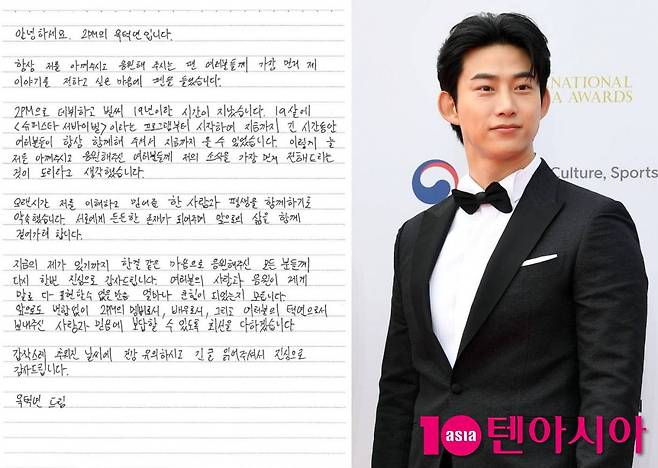 안녕하세요. 2PM의 옥택연입니다.
항상 저를 아껴주시고 응원해 주시는 팬 여러분들께 가장 먼저 제
이야기를 전하고 싶은 마음에 펜을 들었습니다.
2PM으로 데뷔하고 벌써 19년이란 시간이 지났습니다. 19살에
<슈퍼스타 서바이벌>이라는 프로그램부터 시작하여 지금까지 긴 시간동안
여러분들이 항상 함께해 주셔서 지금까지 올 수 있었습니다. 이렇게 늘
저를 아껴주시고 응원해주신 여러분들께 저의 소식을 가장 먼저 전해드리는
것이 도리라고 생각했습니다.
오랜시간 저를 이해하고 믿어준 한 사람과 평생을 함께하기로
약속했습니다. 서로에게 든든한 존재가 되어주며 앞으로의 삶을 함께
걸어가려 합니다.
지금의 제가 있기까지 한결 같은 마음으로 응원해주신 모든 분들께
다시 한번 진심으로 감사드립니다. 여러분의 사랑과 응원이 제게
말로 다 표현할수 없을만큼 얼마나 큰힘이 되었는지 모릅니다.
앞으로도 변함없이 2PM의 멤버로서, 배우로서, 그리고 여러분의 택연으로서
보내주신 사랑과 믿음에 보답할 수 있도록 최선을 다하겠습니다
갑작스레 추워진 날씨에 건강 유의하시고 긴글 읽어주셔서 진심으로
감사드립니다.
옥택연 드림
NATIONAL
A AWARDS
Culture, Sports
10 asia 텐아시아